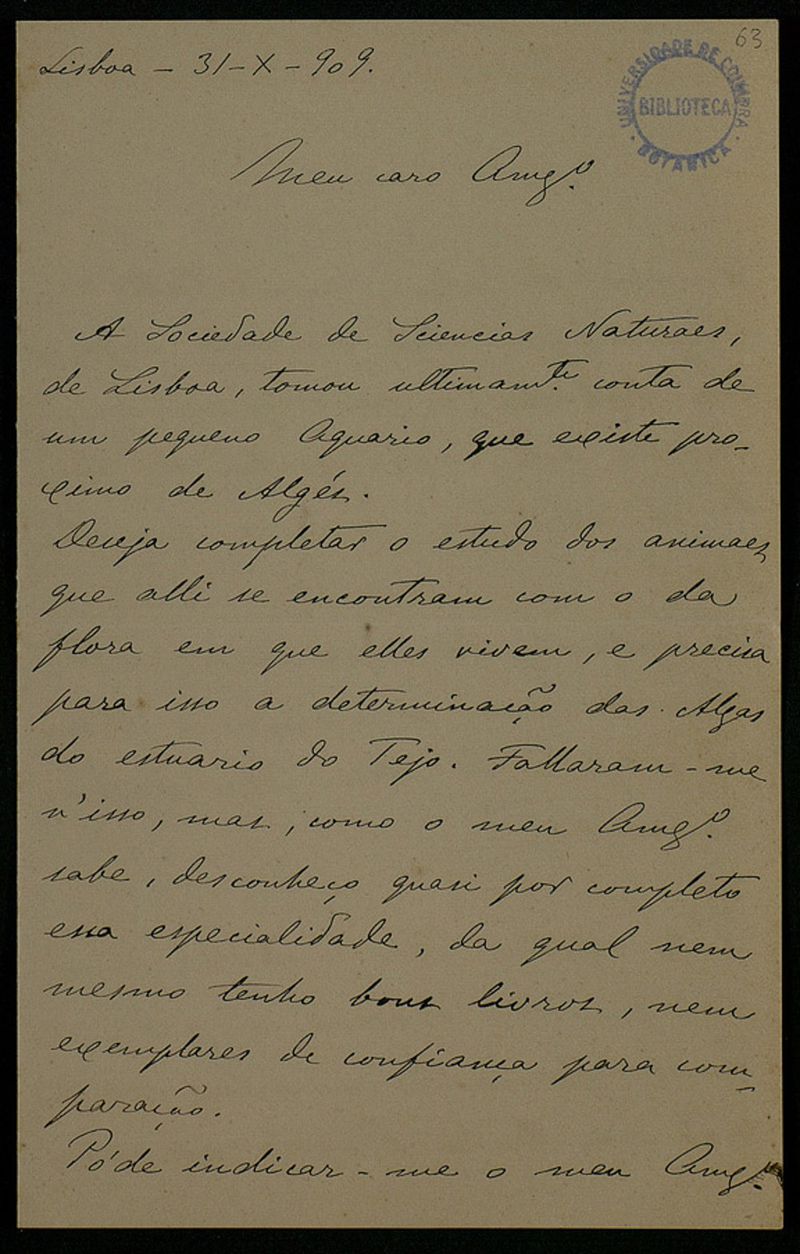 63
UNIVERSIDADE DE COIMBRA
BIBLIOTECA
BOTANICA
Lisboa - 31-X-909.
Meu caro Amg.º
A Sociedade de Sciencias Naturaes,
de Lisboa, tomou ultimam.te conta de
um pequeno Aquario, que existe pro-
ximo de Algés.
Deseja completar o estudo dos animaes
que alli se encontram com o da
flora em que elles vivem, e precisa
para isso a determinação das Algas
do estuario do Tejo. Fallaram-me
n'isso, mas, como o meu Amg.º
sabe, desconheço quasi por completo
essa especialidade, da qual nem
mesmo tenho bons livros, nem
exemplares de confiança para com-
paração.
Póde indicar-me o meu Amg.º